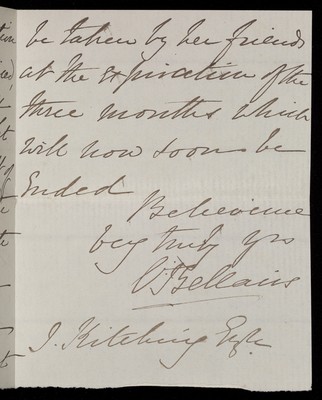 be taken by her friends
at the expiration of the
three months which
will now soon be
ended
Believe me
very truly yrs
Bellairs
J. Kitching Esqre